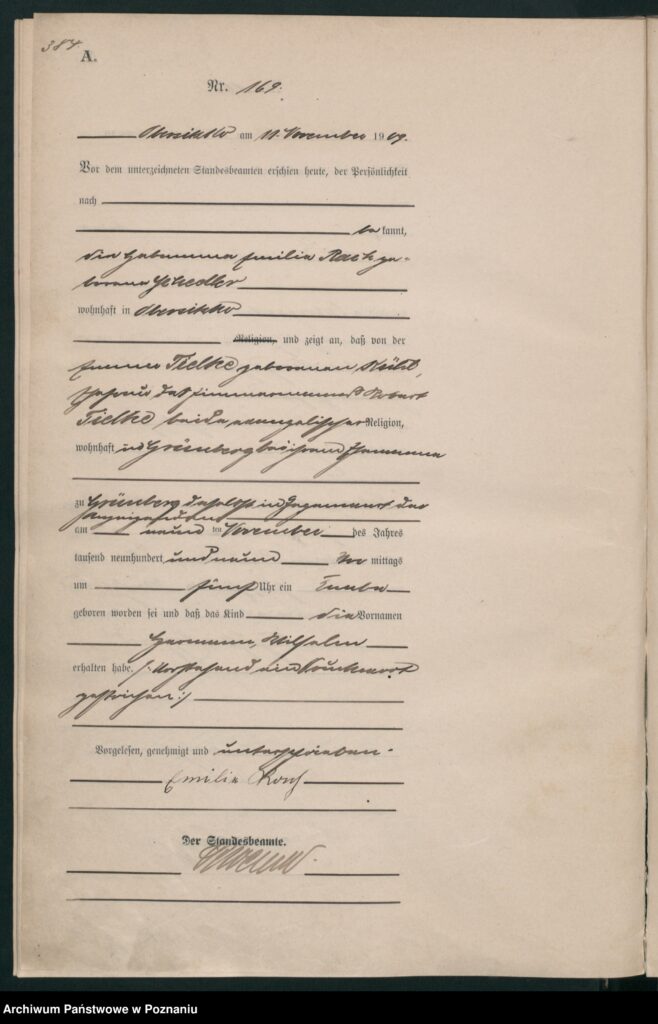 384
A.
Nr. 169.
Obersitzko am 11. November 1909.
Vor dem unterzeichneten Standesbeamten erschien heute, der Persönlichkeit
nach
bekannt,
die Hebamme Emilie Rach ge-
borene
wohnhaft in Obersitzko
Religion, und zeigt an, daß von der
Emma Tielke geborenen
Ehefrau des Zimmermanns Robert
Tielke beide evangelischer Religion,
wohnhaft in Grünberg bei ihrem Ehemanne
zu Grünberg daselbst in Gegenwart der
Anzeigenden
am neunten November des Jahres
tausend neunhundert und neun Vormittags
um fünf Uhr ein Knabe
geboren worden sei und daß das Kind die Vornamen
Hermann, Wilhelm
erhalten habe. /: Vorstehend ein Druckwort
gestrichen :/
Vorgelesen, genehmigt und unterschrieben.
Emilie Rach
Der Standesbeamte.
Archiwum Państwowe w Poznaniu